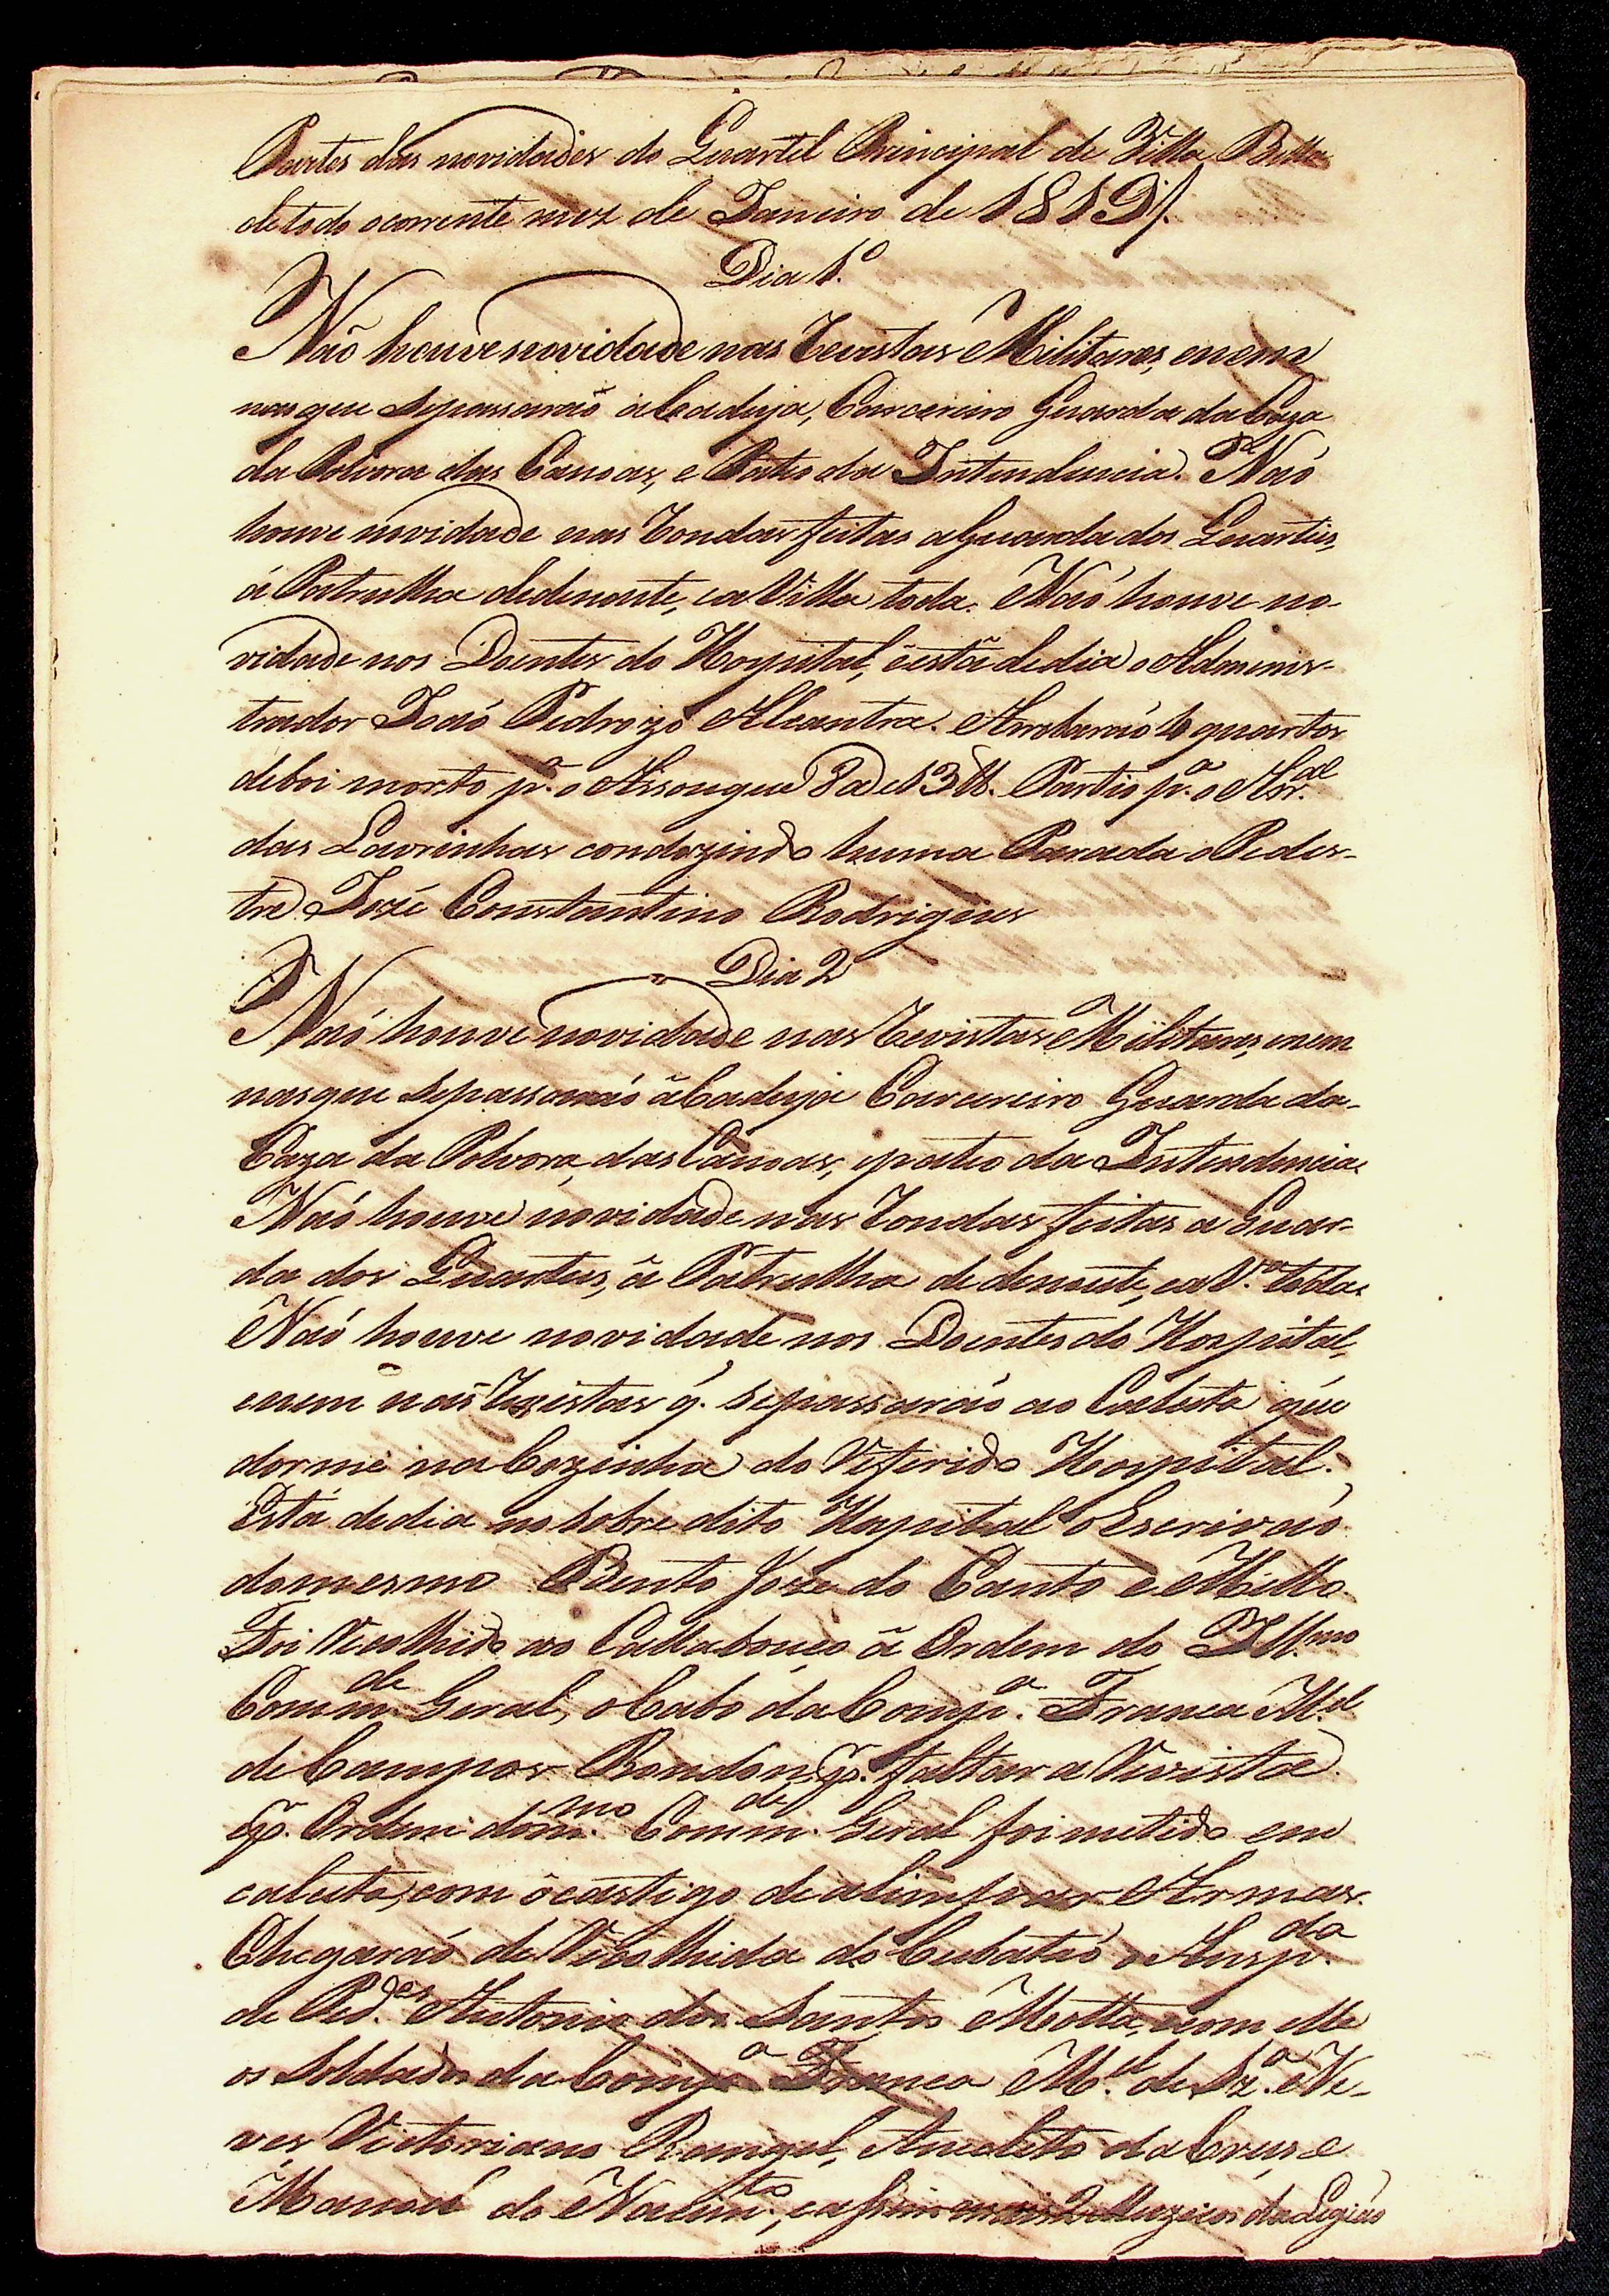 Partes das novidades do Quartel Principal de Villa Bella
de todo o corrente mez de Janeiro de 1819//.
Dia 1.º
Não houve novidade nas Revistas Militares, enem
nas que sepassaraõ aCadeya, Carcereiro Guarda da Caza
da Polvora das Canoas, e Pateo da Intendencia. Naó
houve novidade nas Rondas feitas aGuarda dos Quarteis,
á Patrulha dedenoute, eaVilla toda. Naó houve no-
vidade nos Doentes do Hospital, está dedia o Adminis-
trador Joaó Pedrozo Alcantra. Arrobaraó 4 quartos
deboi morto p.ª o Aisougue 8@ e13 lb. Partio p.ª o Arr.al
das Lavrinhas conduzindo huma Parada o Pedes-
tre Jozé Constantino Rodrigues
Dia 2
Naó houve novidade nas Revistas Militares, enem
nasque sepassaraó áCadeya Carcereiro Guarda da-
Caza da Polvora, das Canoas, epateo da Intendencia.
Naó houve novidade nas Rondas feitas a Guar-
da dos Quarteis, á Patrulha de denoute, eaV.ª toda.
Naó houve novidade nos Doentes do Hospital,
enem nas Revistas q. sepassaraó ao Calceta que
dorme naCozinha do Referido Hospital.
Está dedia nosobre dito Hospital oEscrivaó
domesmo Bento Joze do Canto e Mello.
Foi Recolhido ao Callabouço á Ordem do Ill.mo
Comm.de Geral, oCabo daComp.ª Franca M.el
deCampos Rondon, p.r faltar a Revista
e p.r Ordem dom.mo Comm.de Geral foi metido em
calceta, com ocastigo de alimpar Armas.
Chegaraó de Recolhida do Cubataó o Ansp.da
de Ped.es Antonio dos Santos Motta, ecom elle
os Soldados da Comp.ª Franca M.el de Sz.ª Ne-
ves, Victoriano Rangel, Anacleto daCruz, e
Manoel do Nacim.to, eassim mais 2 Muzicos da Legiaó